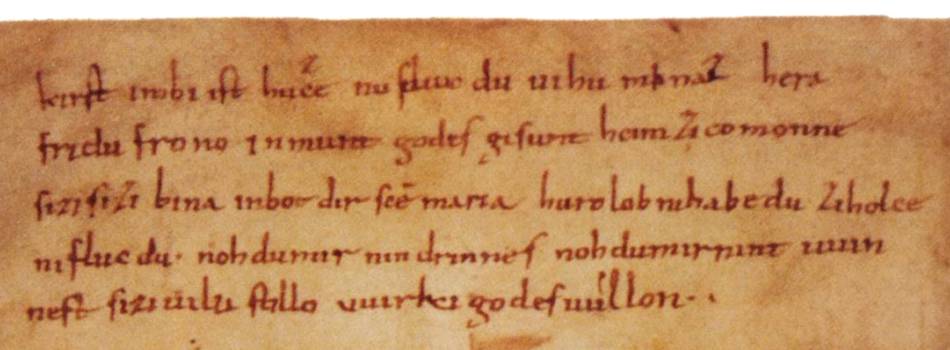 kirst imbi ist hucze nu fluic du uihu minaz hera
fridu frono inmunt godes gisunt heim zi comonne
sizi sizi bina inbot dir sce maria hurolob nihabe du zi holce
ni fluc du · noh du mir nindrinnes noh du mir nint uuin
nest sizi uilu stillo vuirki godes uuillon · ·